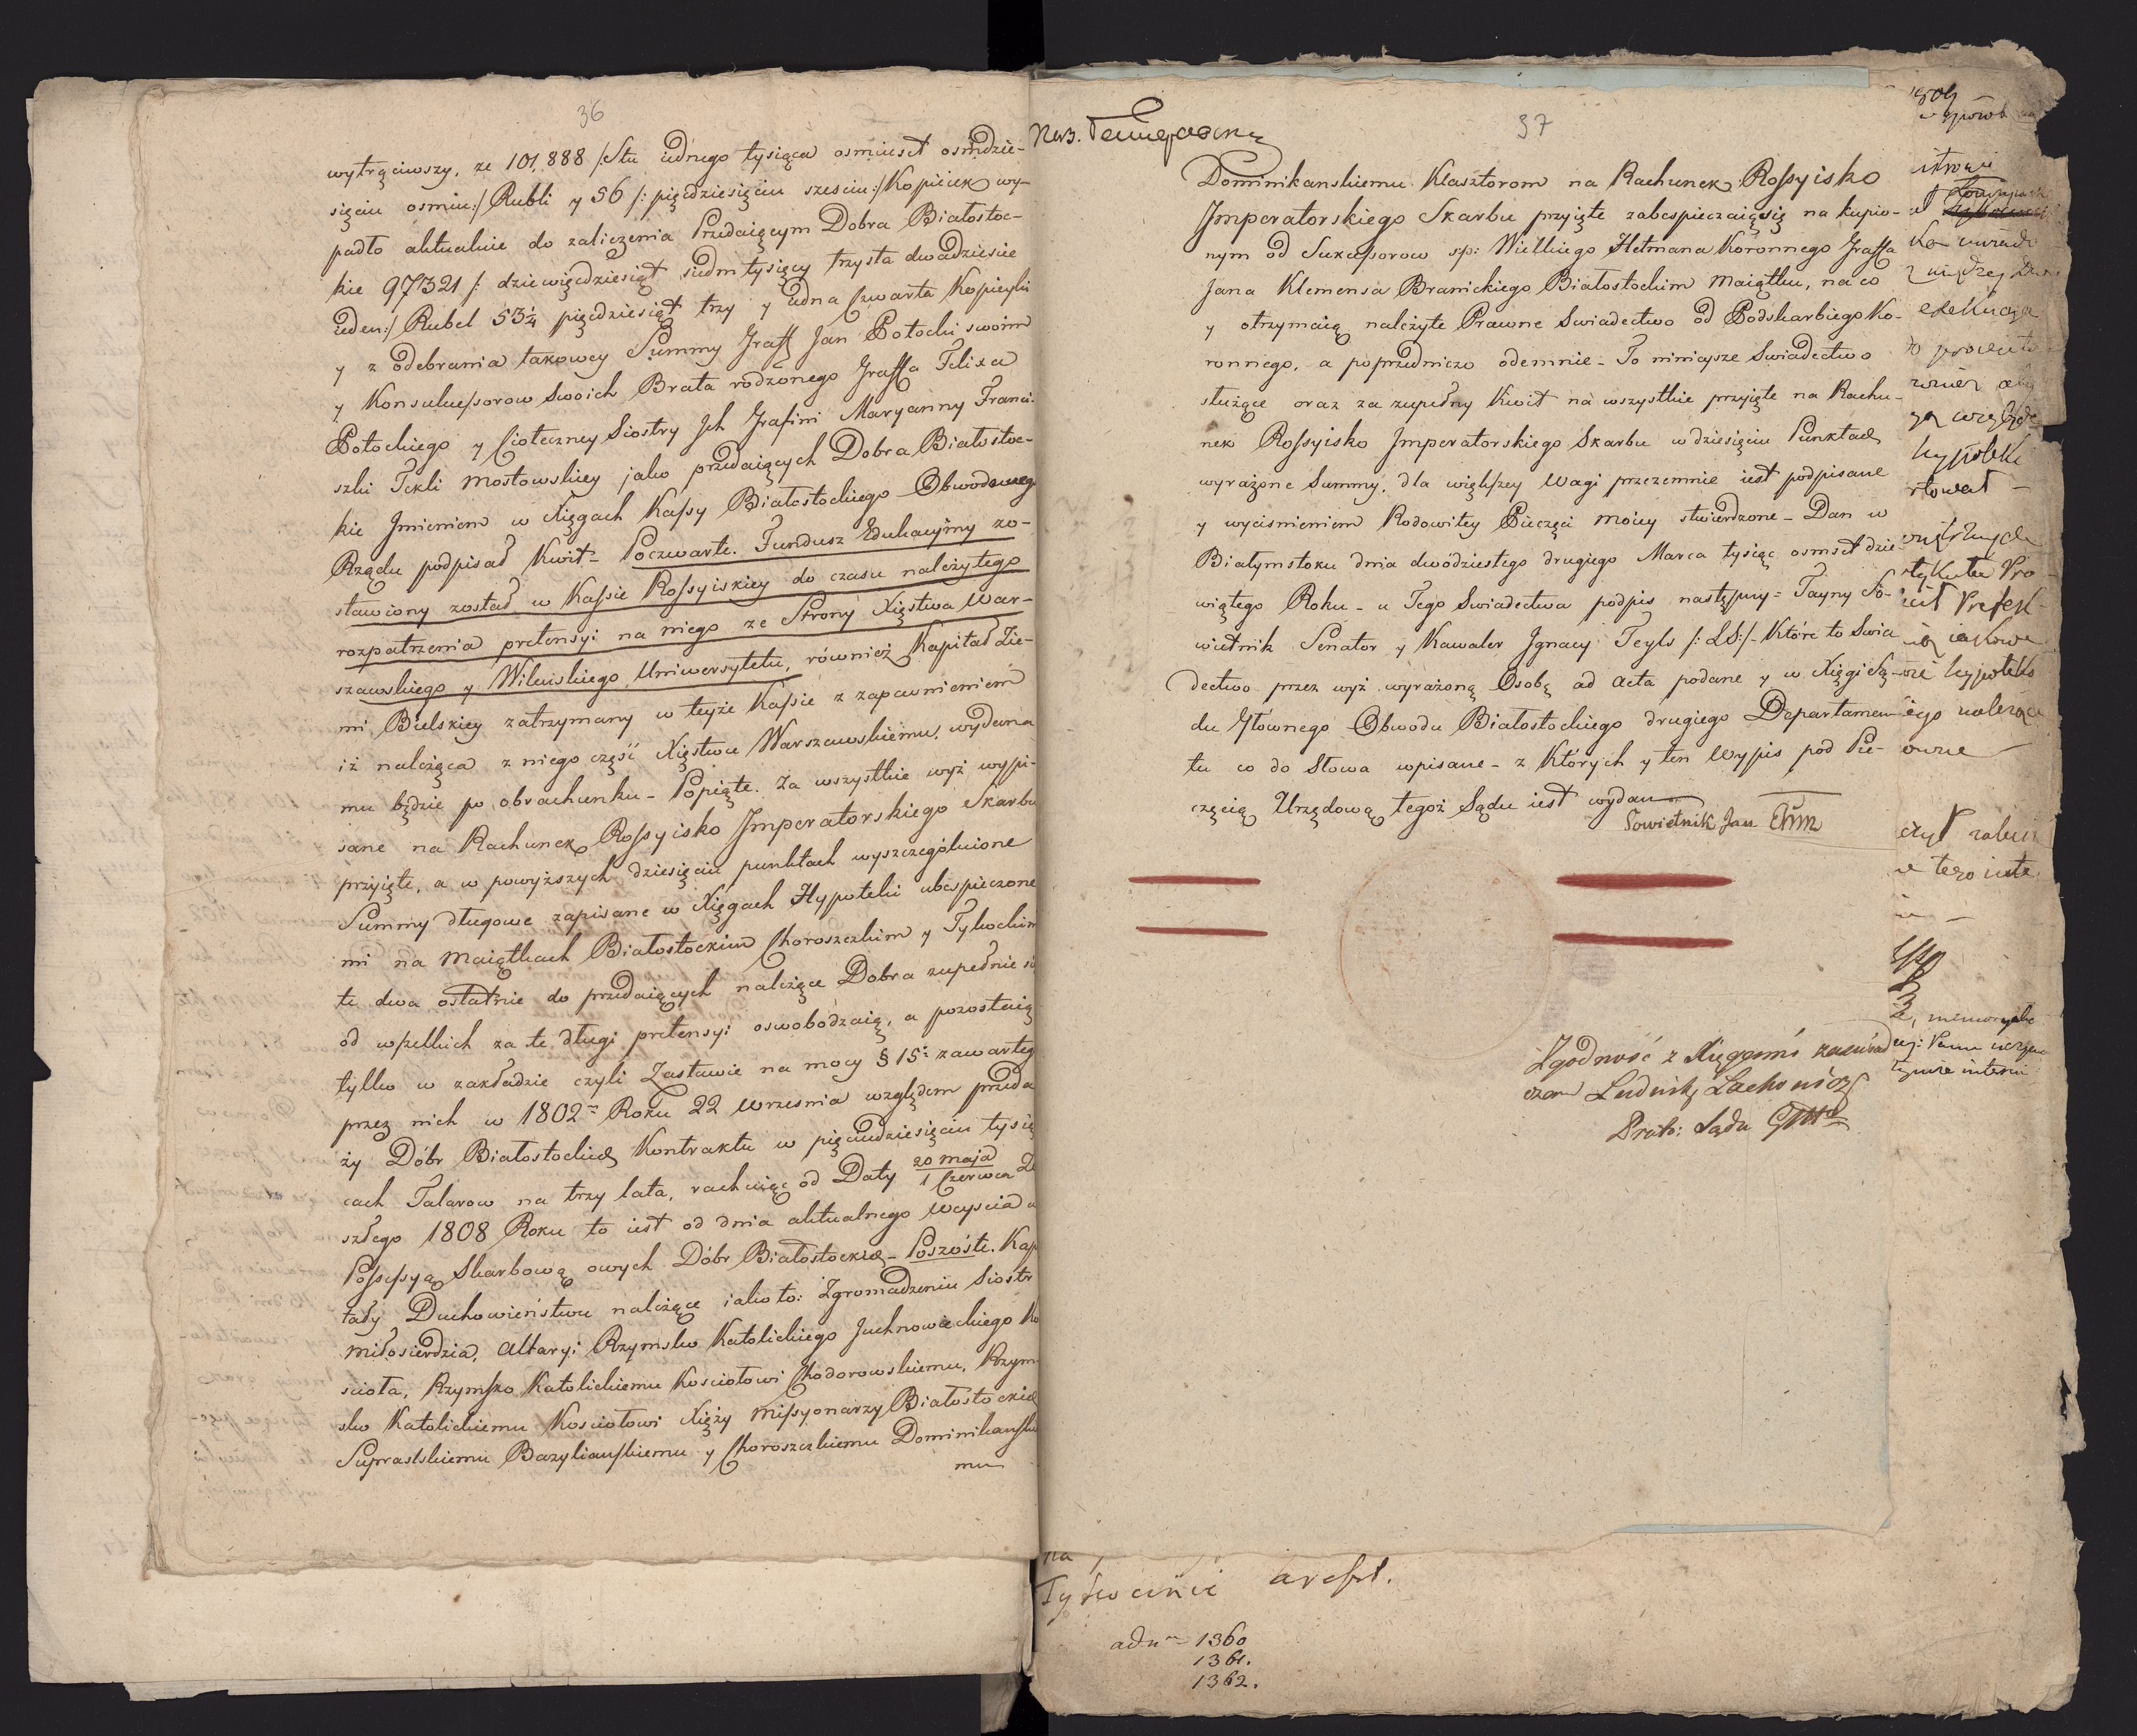 36
wytrąciwszy, ze 101,888 /:Stu iednego tysiąca osmiuset osmdzie-
sięciu osmiu:/ Rubli y 56 /: pięcdziesięciu szesciu:/ Kopieiek wy-
padło aktualnie do zaliczenia Przedaiącym Dobra Białostoc-
kie 97321 /: dziewięcdziesiąt siedm tysięcy trzysta dwadziescie
ieden:/ Rubel 53¼ pięcdziesiąt trzy y iedna czwarta Kopieyki
y z odebrania takowey Summy Graff Jan Potocki swoim
y Konsukcessorow Swoich Brata rodzonego Graffa Felixa
Potockiego y Cioteczney Siostry Jch Grafini Maryanny Franci-
szki Tekli Mostowskiey jako przedaiących Dobra Białostoc-
kie Jmieniem w Xięgach Kassy Białostockiego Obwodowego
Rządu podpisał Kwit - Poczwarte. Fundusz Edukacyiny zo-
stawiony został w Kassie Rossyiskiey do czasu należytego
rozpatrzenia pretensyi na niego ze Strony Xięstwa War-
szawskiego y Wileńskiego Uniwersytetu, również Kapitał Zie-
mi Bielskiey zatrzymany w teyże Kassie z zapewnieniem
iż należąca z niego część Xięstwu Warszawskiemu, wydana
mu będzie po obrachunku - Popiąte. Za wszystkie wyż wypi-
sane na Rachunek Rossyisko Jmperatorskiego Skarbu
przyięte, a w powyższych dziesięciu punktach wyszczególnione
Summy długowe zapisane w Xięgach Hypoteki ubespieczone
mi na Maiątkach Białostockim Choroszczkim y Tykockim
te dwa ostatnie do przedaiących należące Dobra zupełnie są
od wszelkich za te długi pretensyi oswobodzaią, a pozostaią
tylko w zakładzie czyli Zastawie na mocy § 15: zawartego
przez nich w 1802 Roku 22 Wrzesnia względem przeda
ży Dóbr Białostockich Kontraktu w pięciudziesięciu tysię
cach Talarow na trzy lata, rachuiąc od Daty 20 Maja / 1 Czerwca Ze
szłego 1808 Roku to iest od dnia aktualnego weyscia w
Possessyą Skarbową owych Dóbr Białostockich - Poszóste. Kapi
tały Duchowieństwu należące iako to: Zgromadzeniu Siostr
Miłosierdzia, Altaryi Rzymsko Katolickiego Juchnowieckiego Ko
scioła, Rzymsko Katolickiemu Kosciołowi Chodorowskiemu, Rzym-
sko Katolickiemu Kosciołowi Xięży Missyonarzy Białostockich
Supraslskiemu Bazyliańskiemu y Choroszczkiemu Dominikańskie
mu
37
Dominikanskiemu Klasztorom na Rachunek Rossyisko
Jmperatorskiego Skarbu przyięte zabespieczaią się na kupio-
nym od Sukcessorow sp: Wielkiego Hetmana Koronnego Graffa
Jana Klemensa Branickiego Białostockim Maiątku, na co
y otrzymaią należyte Prawne Swiadectwo od Podskarbiego Ko-
ronnego, a poprzedniczo odemnie - To ninieysze Swiadectwo
służące oraz za zupełny Kwit na wszystkie przyięte na Rachu-
nek Rossyisko Jmperatorskiego Skarbu w dziesięciu Punktach
wyrażone Summy, dla większey Wagi przezemnie iest podpisane
y wycisnieniem Rodowitey Pieczęci moiey stwierdzone - Dan w
Białymstoku dnia dwódziestego drugiego Marca tysiąc osmset dzie-
wiątego Roku - u Tego Swiadectwa podpis następny = Tayny So-
wietnik Senator y Kawaler Jgnacy Teyls /: LS:/ - Które to Swia
dectwo przez wyż wyrażoną Osobę ad Acta podane y w Xięgi Są-
du Głównego Obwodu Białostockiego drugiego Departamen
tu co do Słowa wpisane - z Których y ten Wypis pod Pie-
częcią Urzędową tegoż Sądu iest wydan
Sowietnik Jan
Zgodność z Xięgami zaswiad
czam Ludwik Lachowicz
Proto: Sądu
itrowi
exekucya
hypoteki
hypoteki
ego należące
czył
Tykocinie
ad n 1360
1361.
1362.